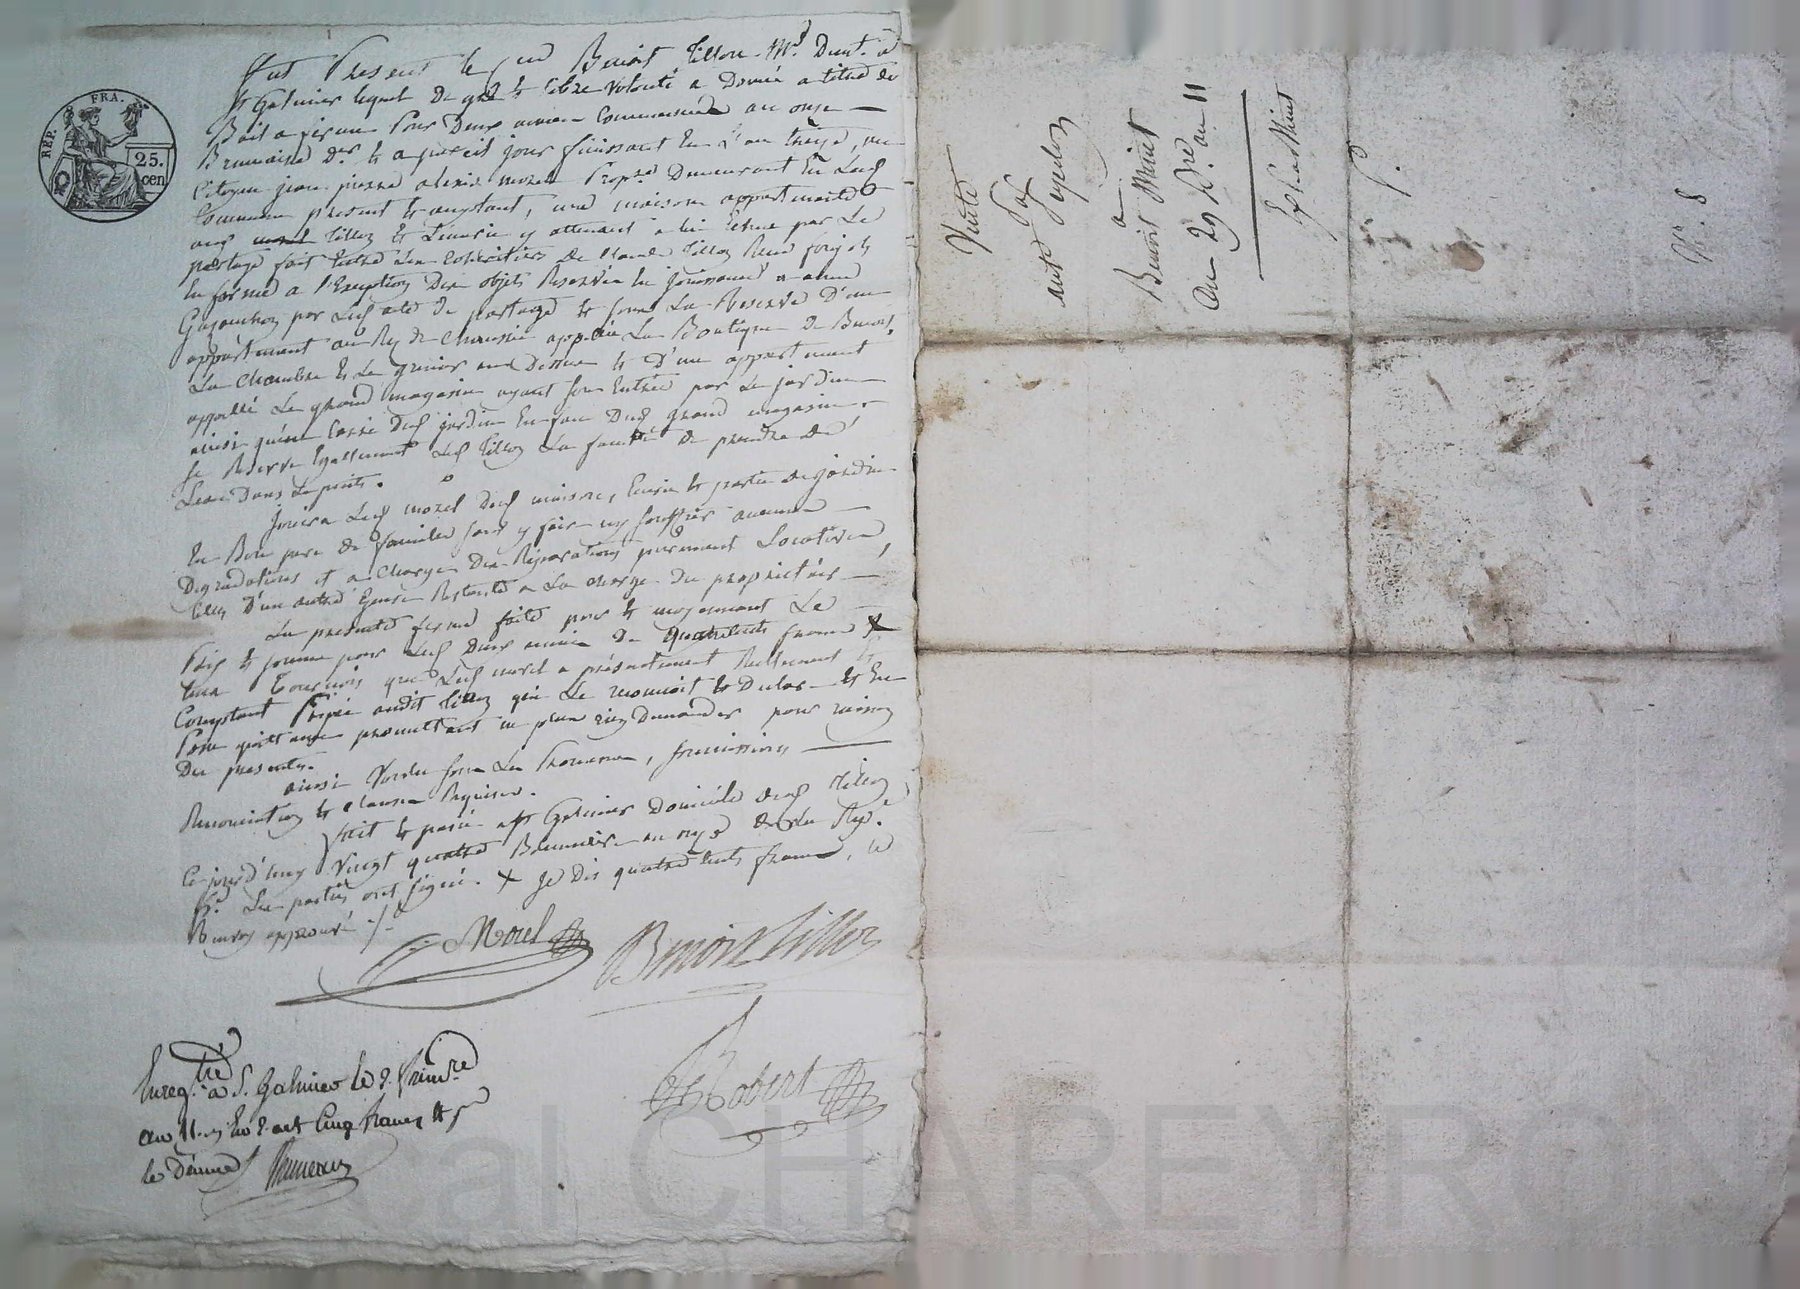 REP. FRA.
25.
cen
Fut Present le Benoit Tillon Md Demt. à
St Galmier lequel De gré & libre Volonté a Donné a titre de
Bail a ferme Pour Deux année Commencée au onze
Brumaire Der & a pareil jour finissant En L'an treize, au
Citoyen jean pierre alexis morel Propre Demeurant En Lad
Commune present & acceptant, une maison appartenante
aud Tillon & L'écurie y attenant a lui Echue par Le
partage fait Entre Les Cohéritiers de
a l'Exception Des objets Reservés En jouissance a
par Led acte de partage & sous La Reserve D'un
appartement au Rez de Chaussée appellé La Boutique De Benoit,
La Chambre & Le grenier au Dessus & D'un appartement
appellé Le grand magasin ayant son Entrée par Le jardin
ainsi qu'un Carré Dud jardin En face Dud grand magasin.
Se Reserve Egallement Led Tillon La faculté de prendre de
Leau Dans Le puits.
jouira Led morel Dud maison, Ecurie & partie de jardin
En Bon pere de famille sans y faire ny souffrir aucune
Degradations et a Charge Des Reparations purement Locatives,
Celles D'un autre genre Restants a La charge Du proprietaire
La presente ferme faite pour & moyennant Le
Prix & somme pour Led Deux année De quatre Cents francs X
Tournois que Led morel a présentement Reellement &
Comptant Payée audit Tillon qui Le reconnoit & Declare & En
Passe quittance promettant ne plus rien Demander pour raison
Du present.
ainsi Voulu sous Les Promesses, soumissions
Renonciations & clauses Requises.
Fait & passé a St Galmier Domicile dud Tillon
Ce jourd'huy Vingt quatre Brumaire an onze de la Rep.
Fse Les parties ont signé. X Je Dis quatre Cents francs, ce
Renvoy approuvé ./.
Morel Benoit Tillon
Robert
Enregtré a St Galmier le 2 frimre
an 11. Cinq francs &
le Decime
Vente
par
a
Benoit
Du 29 an 11
Expédition
P.
N. 8
cal CHAREYRON